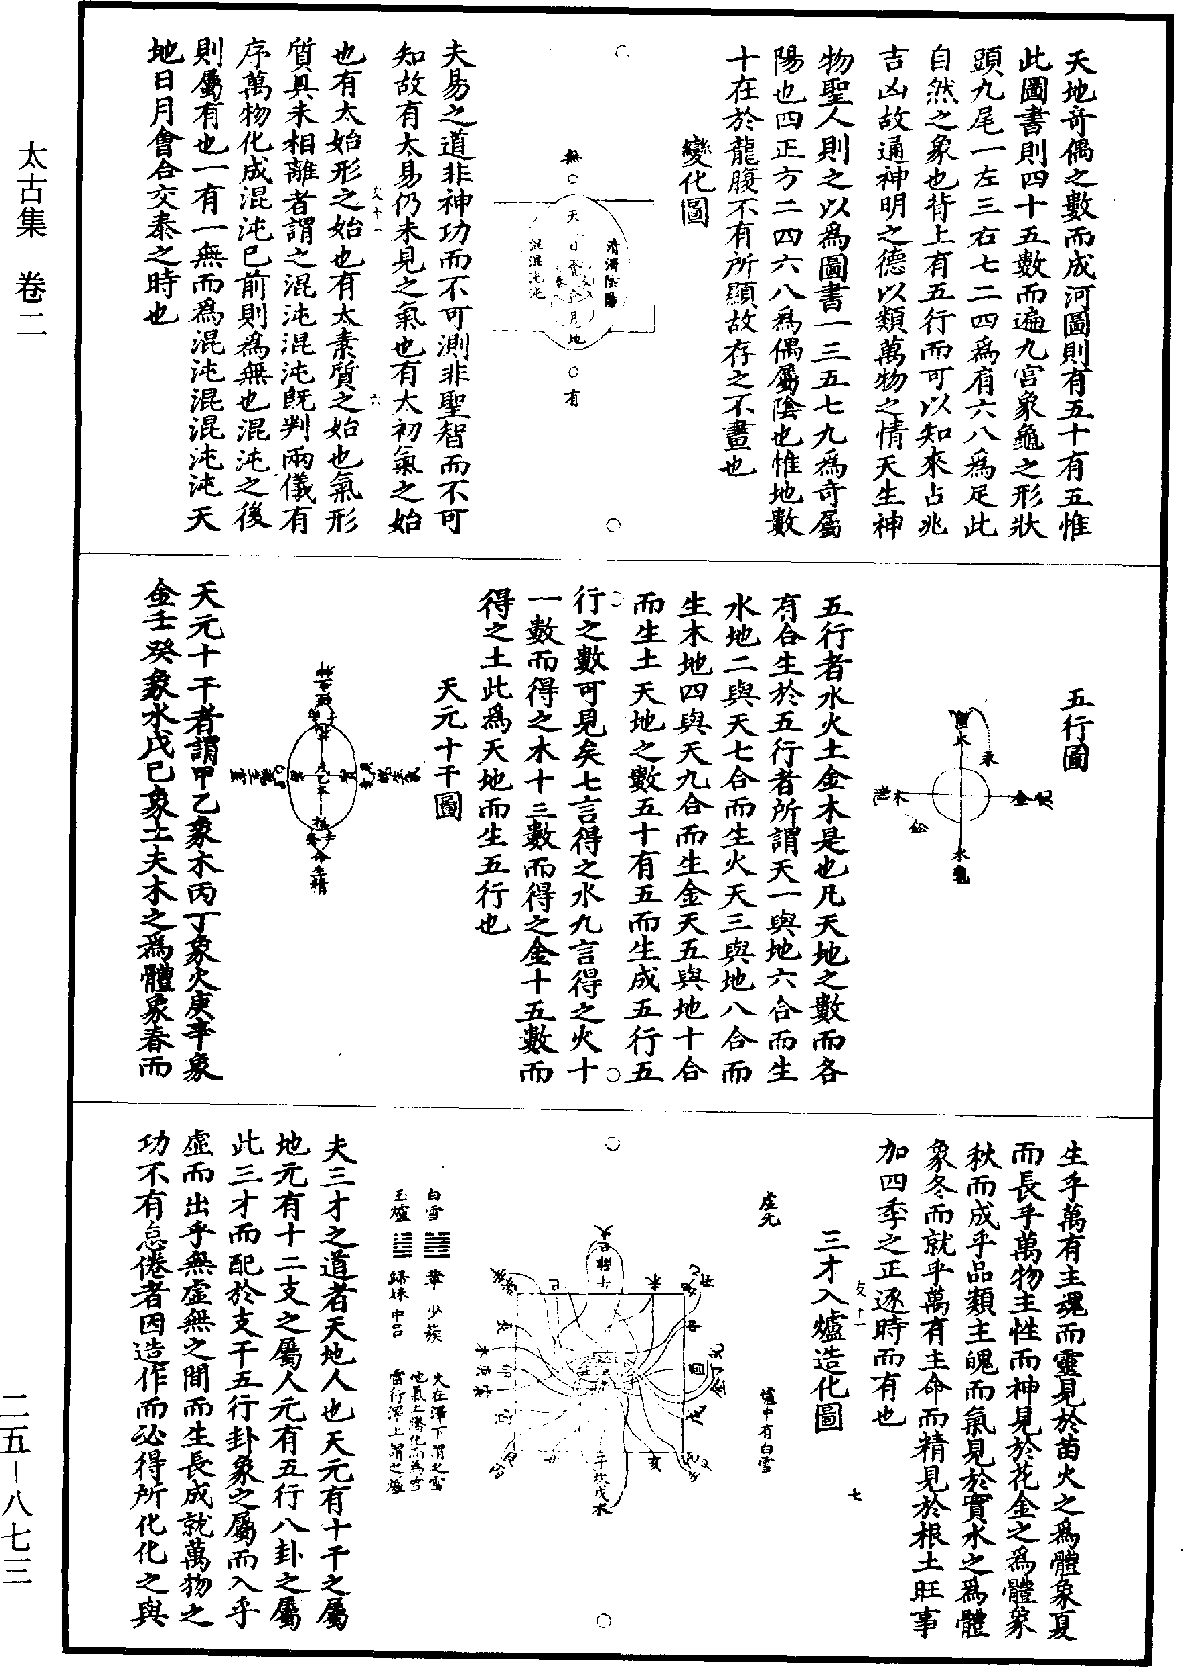 太古集 卷二
二五—八七三
天地奇偶之數而成河圖則有五十有五惟
此圖書則四十五數而遍九宮象龜之形狀
頭九尾一左三右七二四為有六八為足此
自然之象也背上有五行而可以知來占兆
吉凶故通神明之德以類萬物之情天生神
物聖人則之以為圖書一三五七九為奇屬
陽也四正方二四六八為偶屬陰也惟地數
十在於龍腹不有所顯故存之不畫也
變化圖
無
天
地
有
清濁陰陽
混混沌沌
夫易之道非神功而不可測非聖智而不可
知故有太易仍未見之氣也有太初氣之始
也有太始形之始也有太素質之始也氣形
質具未相離者謂之混沌混沌既判兩儀有
序萬物化成混沌已前則為無也混沌之後
則屬有也一有一無而為混沌混混沌沌天
地日月會合交泰之時也
五行圖
火
木
金
水
五行者水火土金木是也凡天地之數而各
有合生於五行者所謂天一與地六合而生
水地二與天七合而生火天三與地八合而
生木地四與天九合而生金天五與地十合
而生土天地之數五十有五而生成五行五
行之數可見矣七言得之水九言得之火十
一數而得之木十三數而得之金十五數而
得之土此為天地而生五行也
天元十干圖
天元十干者謂甲乙象木丙丁象火庚辛象
金壬癸象水戊己象土夫木之為體象春而
生乎萬有主魂而靈見於苗火之為體象夏
而長乎萬物主性而神見於花金之為體象
秋而成乎品類主魄而氣見於實水之為體
象冬而就乎萬有主命而精見於根土旺事
加四季之正逐時而有也
三才入爐造化圖
七
爐中有白雪
白雪
玉爐
歸妹
火在澤下謂之雪
雷行澤上謂之爐
夫三才之道者天地人也天元有十干之屬
地元有十二支之屬人元有五行八卦之屬
此三才而配於支干五行卦象之屬而入乎
虛而出乎無虛無之間而生長成就萬物之
功不有怠倦者因造作而必得所化化之與